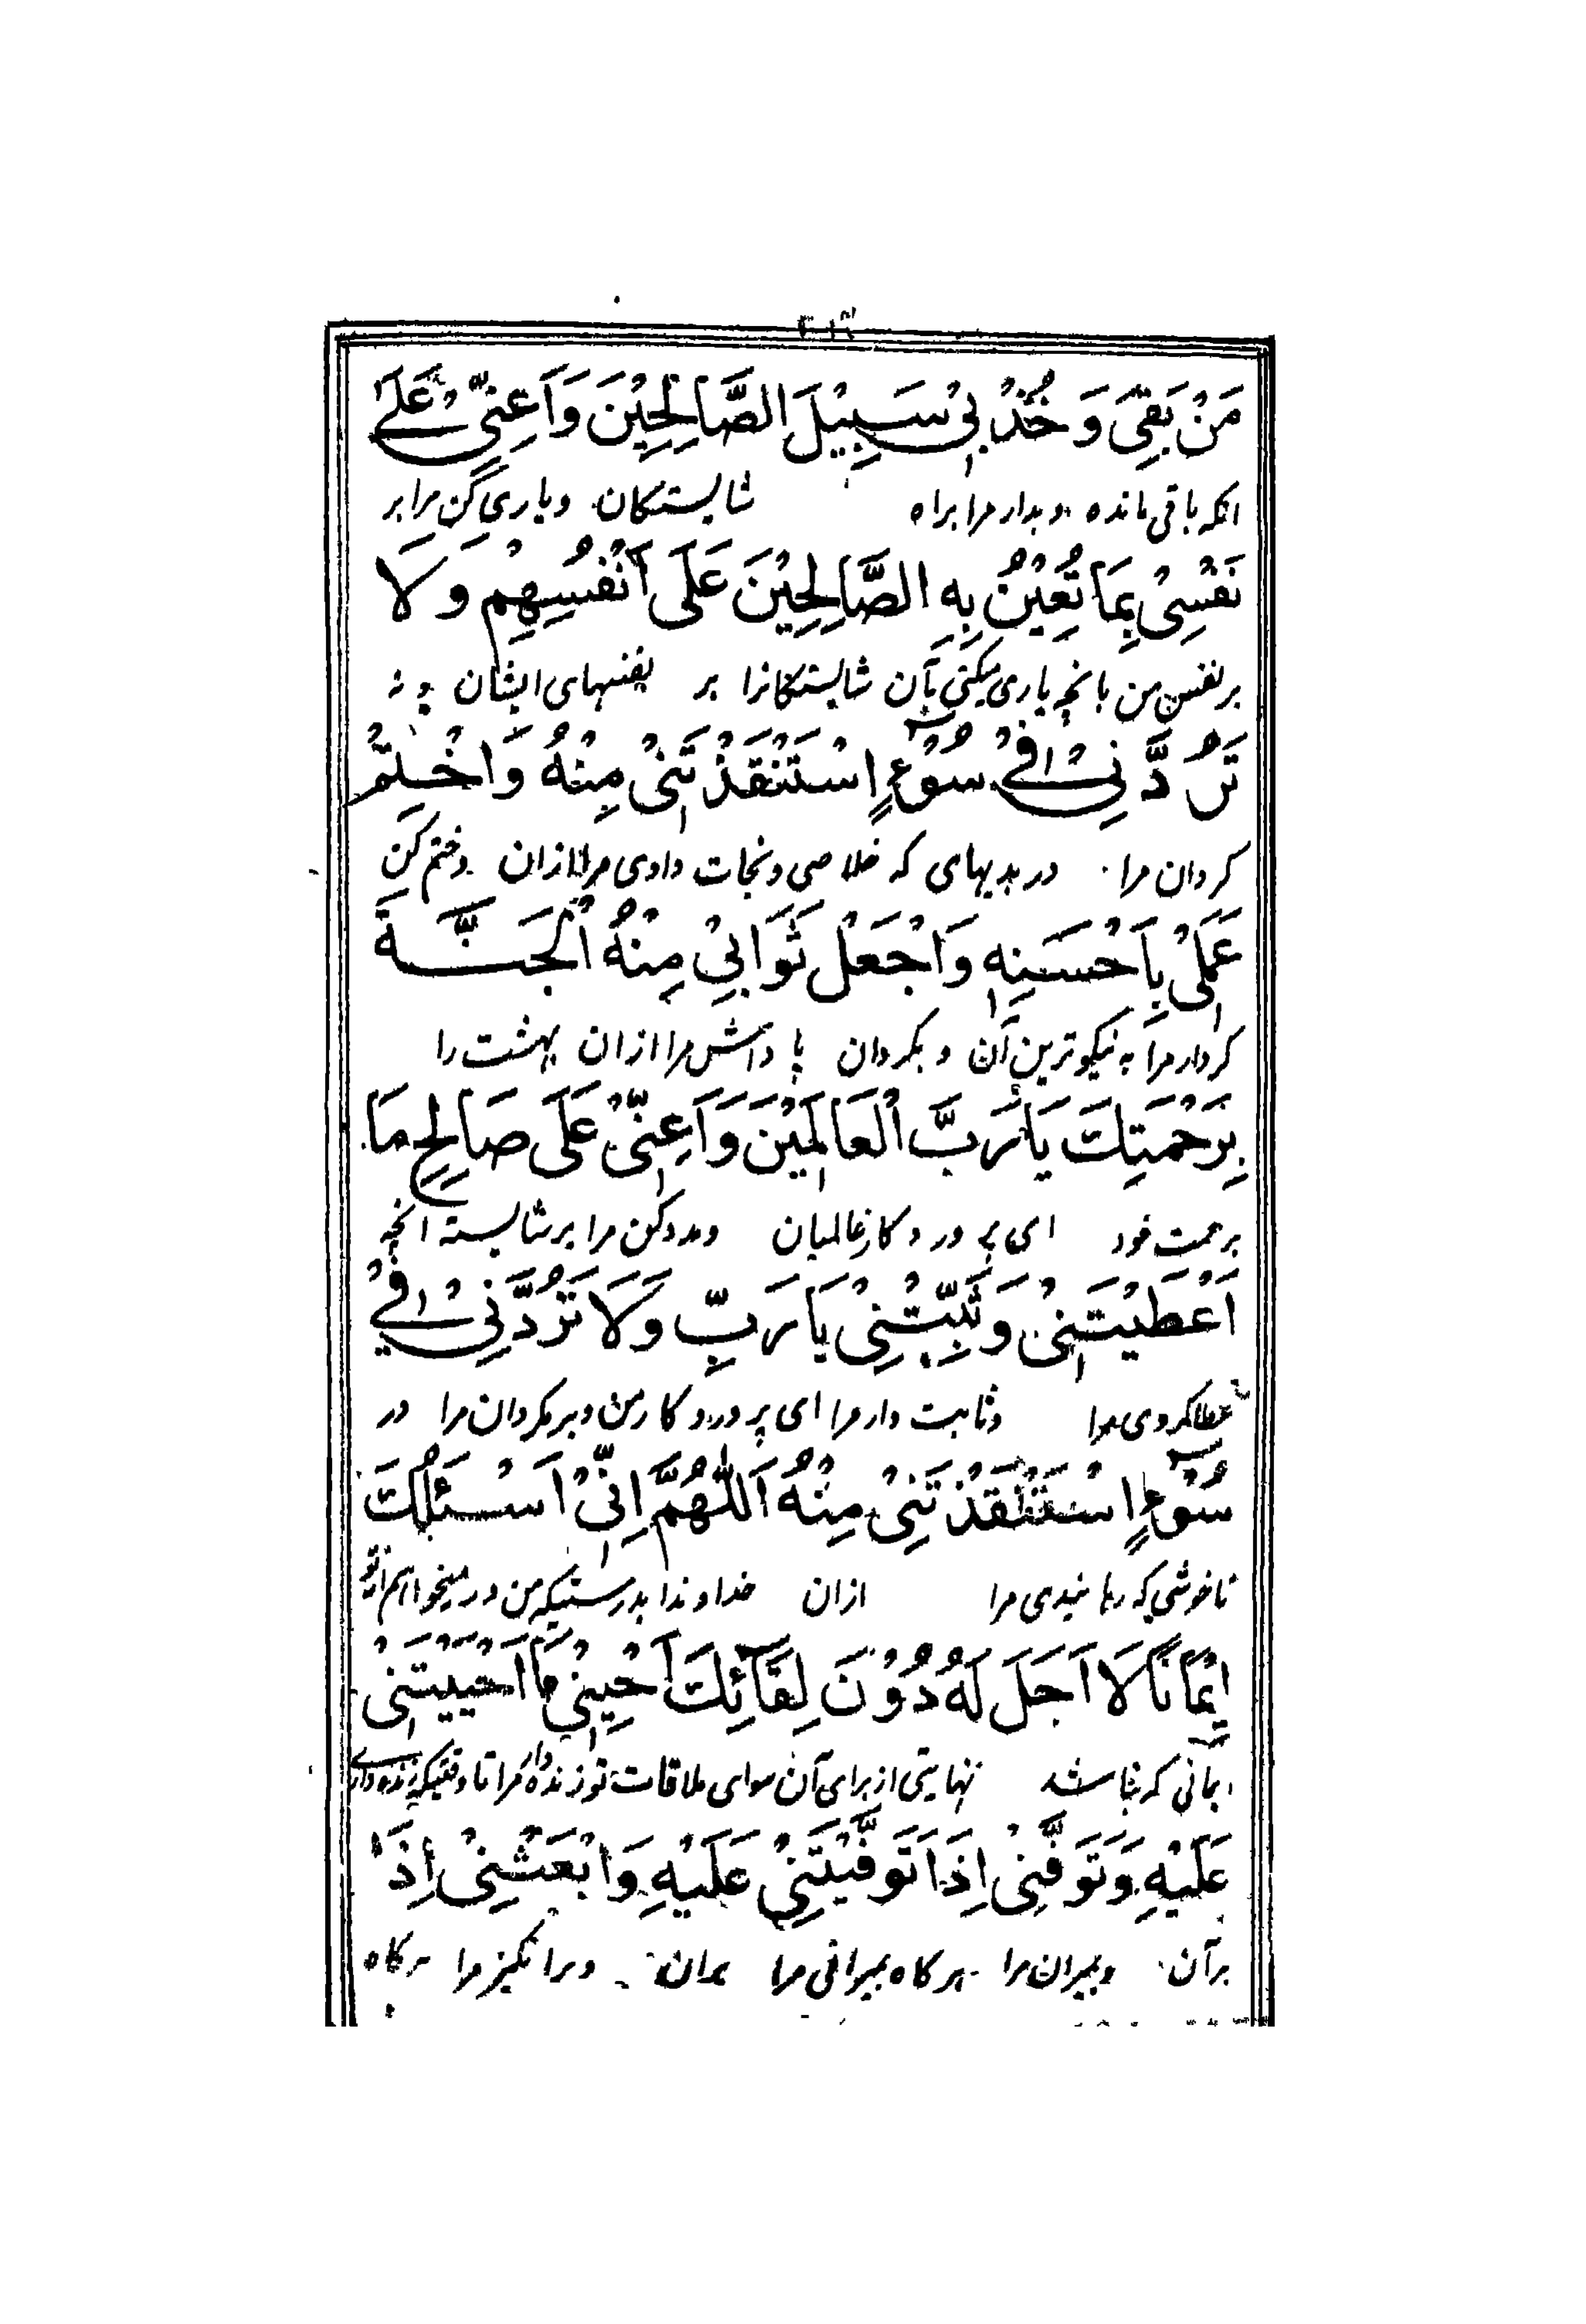 مَنْ بَقِیَ وَ خُذْ بِیْ سَبِیْلَ الصَّالِحِیْنَ وَاَعِنِّیْ عَلٰی
انکه باقی مانده و بدار مرا براه شایستکان و یاری کن مرا بر
نَفْسِیْ بِمَا تُعِیْنُ بِهِ الصَّالِحِیْنَ عَلَی اَنْفُسِهِمْ وَ لَا
بر نفس من بانچه یاری میکنی بآن شایستکانرا بر نفسهای ایشان و نه
تَرُدَّنِیْ فِیْ سُوْءٍ اسْتَنْقَذْتَنِیْ مِنْهُ وَاخْتِمْ
کردان مرا در بدیهای که خلاصی و نجات دادی مرا ازان و ختم کن
عَمَلِیْ بِاَحْسَنِهِ وَاجْعَلْ ثَوَابِیْ مِنْهُ الْجَنَّةَ
کردار مرا به نیکوترین آن و بکردان پاداش مرا ازان بهشت را
بِرَحْمَتِكَ یَا رَبَّ الْعَالَمِیْنَ وَاَعِنِّیْ عَلَی صَالِحِ مَا
برحمت خود ای پروردکار عالمیان و مدد کن مرا بر شایسته انچه
اَعْطَیْتَنِیْ وَ ثَبِّتْنِیْ یَا رَبِّ وَ لَا تَرُدَّنِیْ فِیْ
عطا کردی مرا و ثابت دار مرا ای پروردکار من و بر مکردان مرا در
سُوْءٍ اسْتَنْقَذْتَنِیْ مِنْهُ اَللّٰهُمَّ اِنِّیْ اَسْئَلُكَ
ناخوشی که رهانیدی مرا ازان خداوندا بدرستیکه من در میخواهم از تو
اِیْمَانًا لَا اَجَلَ لَهُ دُوْنَ لِقَآئِكَ اَحْیِنِیْ مَا اَحْیَیْتَنِیْ
ایمانی که نباشد نهایتی از برای آن سوای ملاقات تو زنده دار مرا تا وقتیکه زنده داری
عَلَیْهِ وَ تَوَفَّنِیْ اِذَا تَوَفَّیْتَنِیْ عَلَیْهِ وَ ابْعَثْنِیْ اِذَا
برآن و بمیران مرا هرکاه بمیرانی مرا بران و برانکیز مرا هرکاه